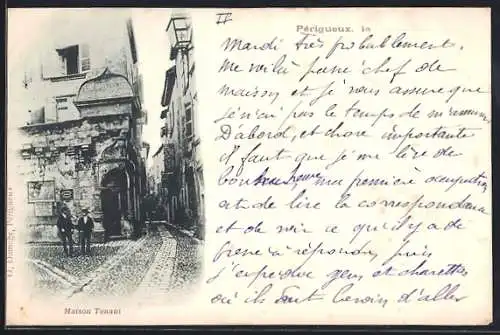 IV
Périgueux, le
Mardi très probablement.
Me voilà passé chef de
maison et je vous assure que
je n'ai pas le temps de m'amuser
D'abord, et chose importante
il faut que je me lève de
bonne heure, ma première occupation
est de lire la correspondance
et de voir ce qu'il y a de
à répondre, puis
j'expédie gens et charrettes
où ils ont besoin d'aller
Maison Tenant